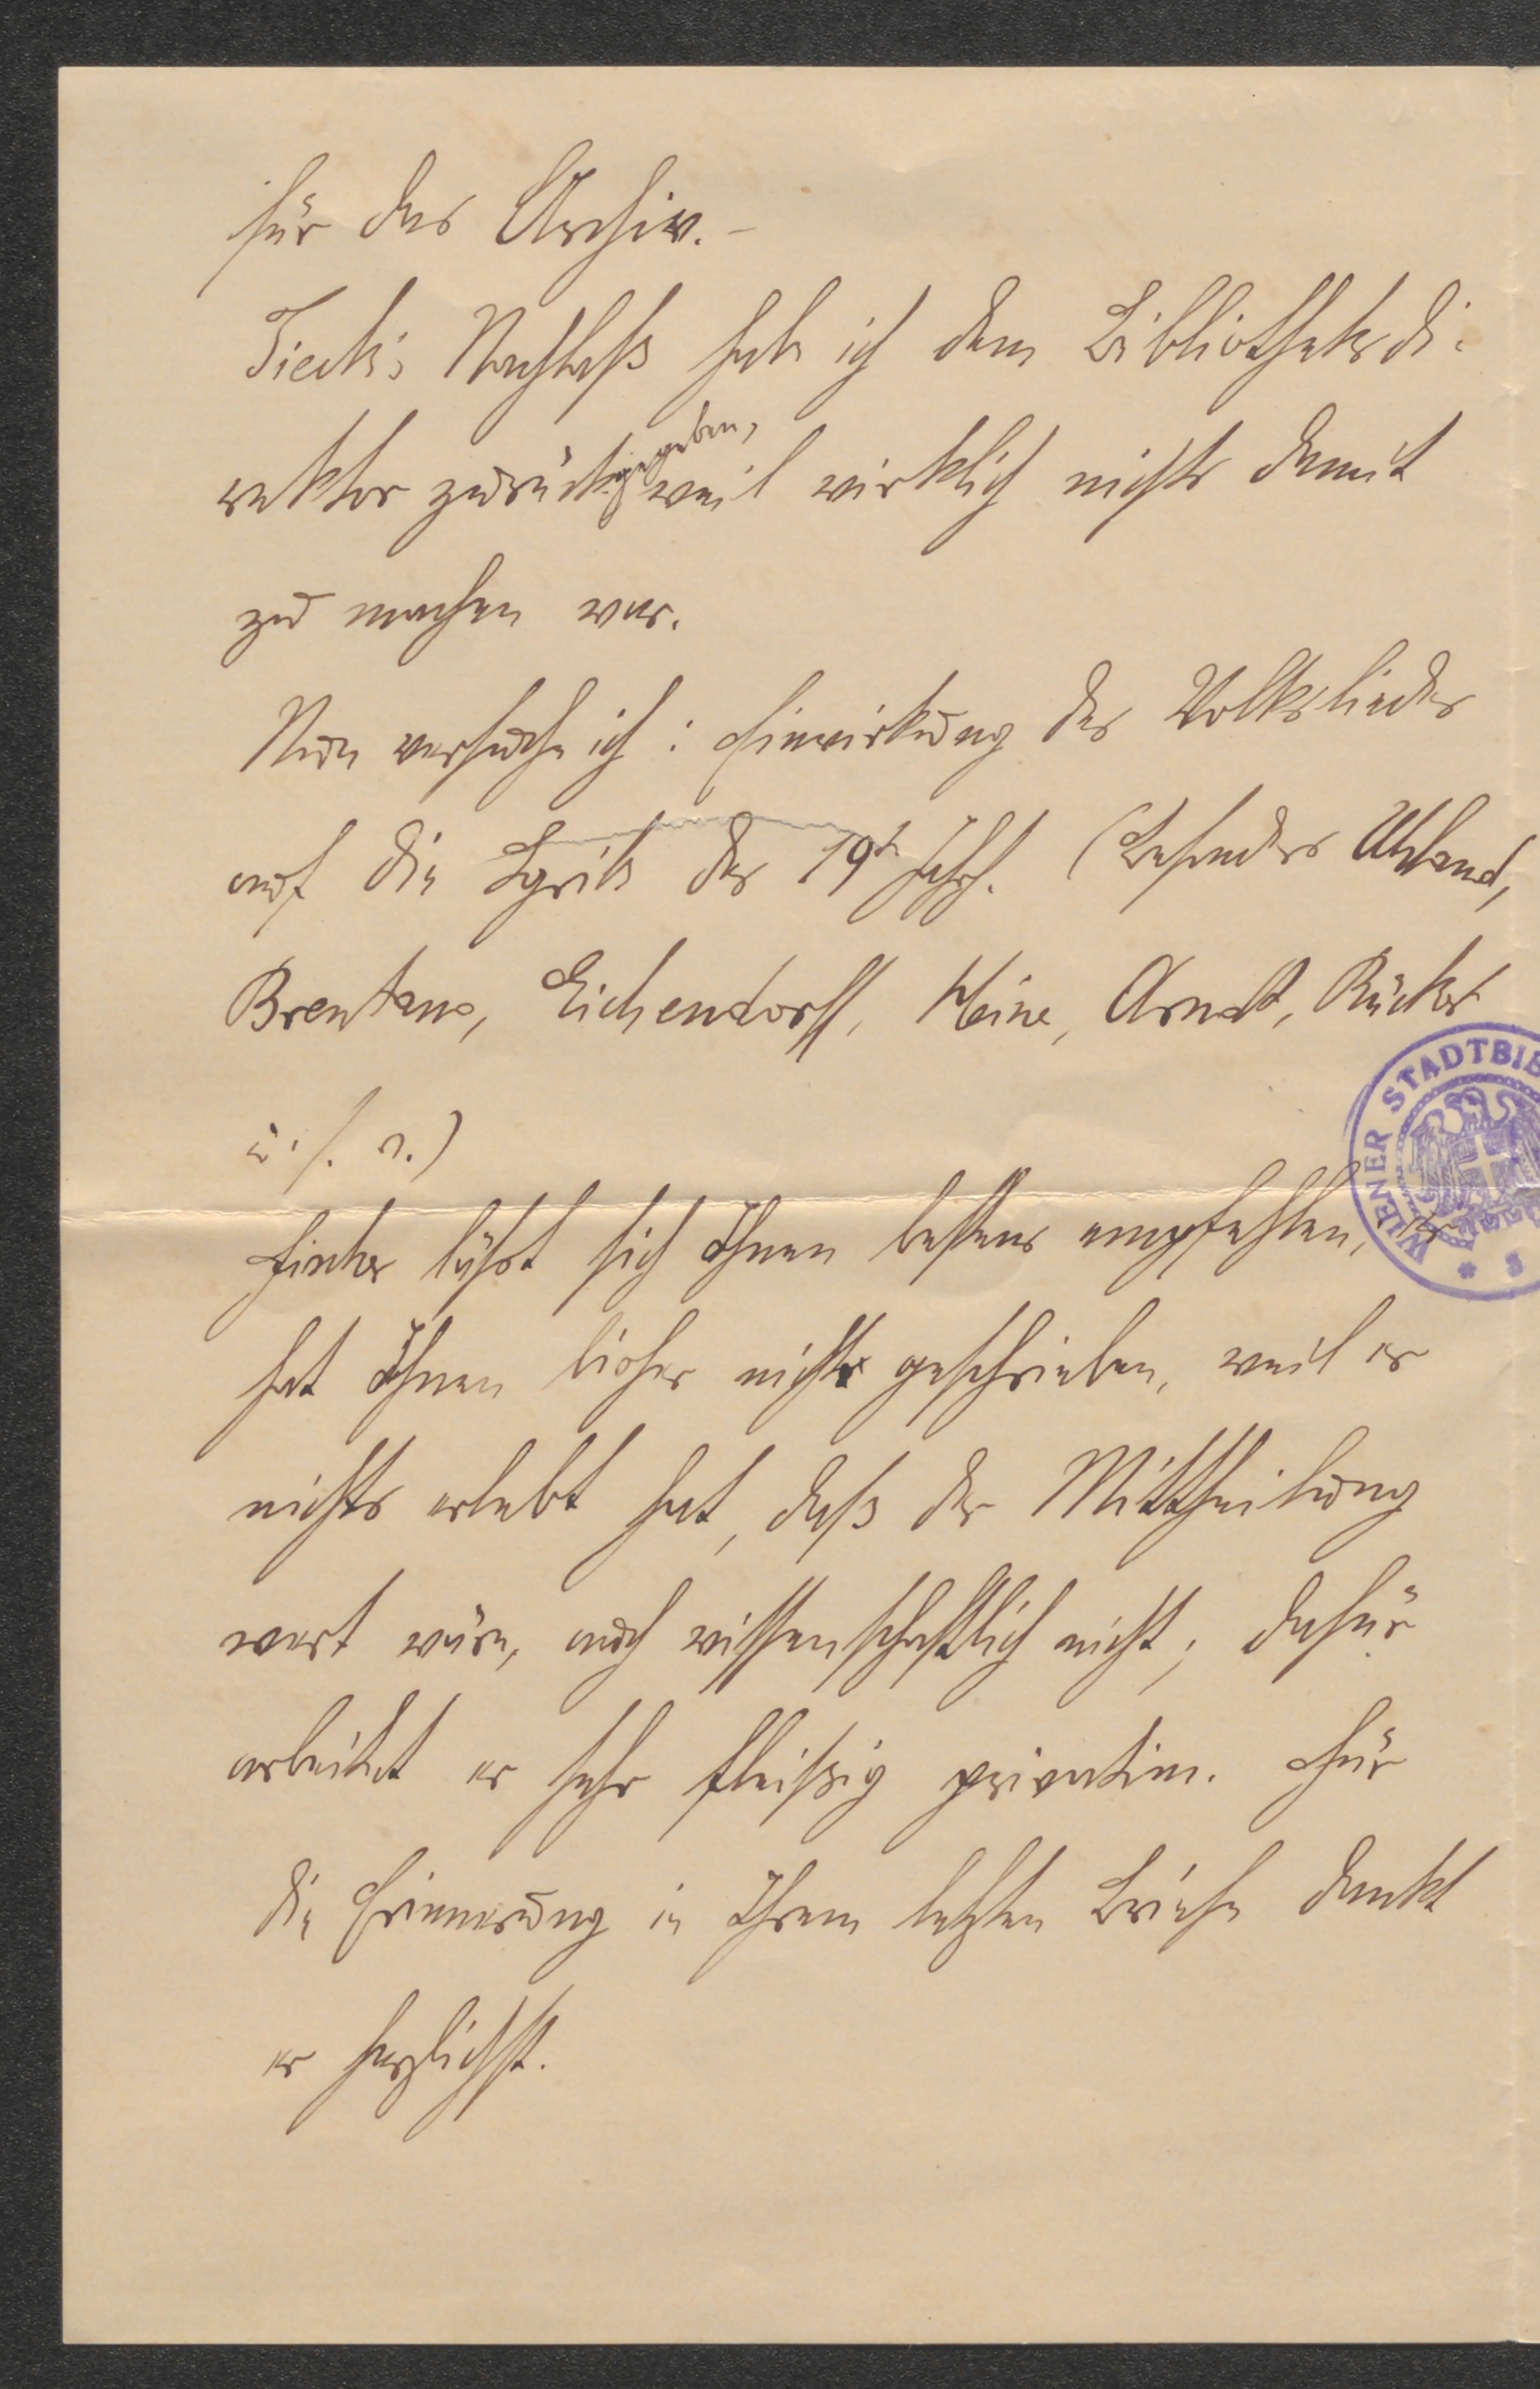 für das Archiv. –
Tieck's Nachlaß habe ich dem Bibliotheksdi-
rektor zurückgegeben, weil wirklich nichts damit
zu machen war.
Nun versuche ich: Einwirkung des Volksliedes
auf die Lyrik des 19t Jahrh. (besonders Uhland,
Brentano, Eichendorff, Heine, Arndt, Rückert
u. s. v.)
läßt sich Ihnen bestens empfehlen, er
hat Ihnen bisher nicht geschrieben, weil er
nichts erlebt hat, daß der Mittheilung
wert wäre, auch wissenschaftlich nicht; dafür
arbeitet er sehr fleißig privatim. Für
die Erinnerung in Ihrem letzten Briefe dankt
er herzlichst.
WIENER STADTBIB